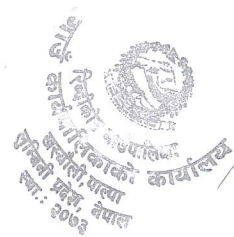 गाउँपालिका
गाउँ कार्यपालिकाको कार्यालय
पाल्पा
लुम्बिनी प्रदेश, नेपाल
स्था.: २०७३